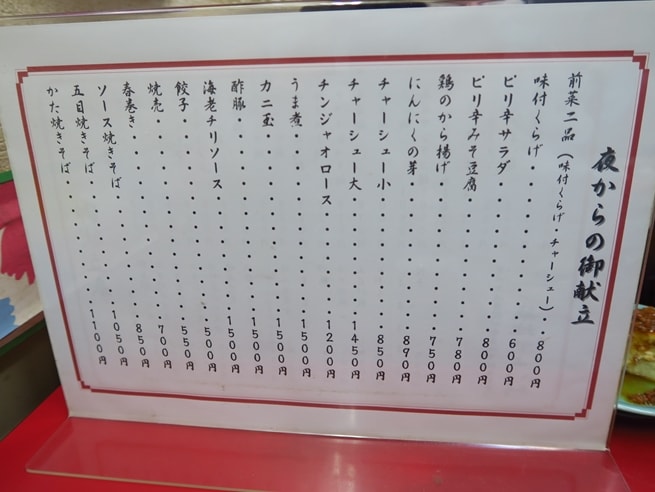 夜からの御献立
前菜二品（味付くらげ・チャーシュー）・・８００円
味付くらげ・・・・・・・・・・・・６００円
ピリ辛サラダ・・・・・・・・・・・８００円
ピリ辛みそ豆腐・・・・・・・・・・７８０円
鶏のから揚げ・・・・・・・・・・・７５０円
にんにくの芽・・・・・・・・・・・８９０円
チャーシュー小・・・・・・・・・・８５０円
チャーシュー大・・・・・・・・・・１４５０円
チンジャオロース・・・・・・・・・１２００円
うま煮・・・・・・・・・・・・・・１５００円
カニ玉・・・・・・・・・・・・・・１５００円
酢豚・・・・・・・・・・・・・・・１５００円
海老チリソース・・・・・・・・・・１５００円
餃子・・・・・・・・・・・・・・・５００円
焼売・・・・・・・・・・・・・・・５５０円
春巻き・・・・・・・・・・・・・・７００円
ソース焼きそば・・・・・・・・・・８５０円
五目焼きそば・・・・・・・・・・・１０５０円
かた焼きそば・・・・・・・・・・・１１００円